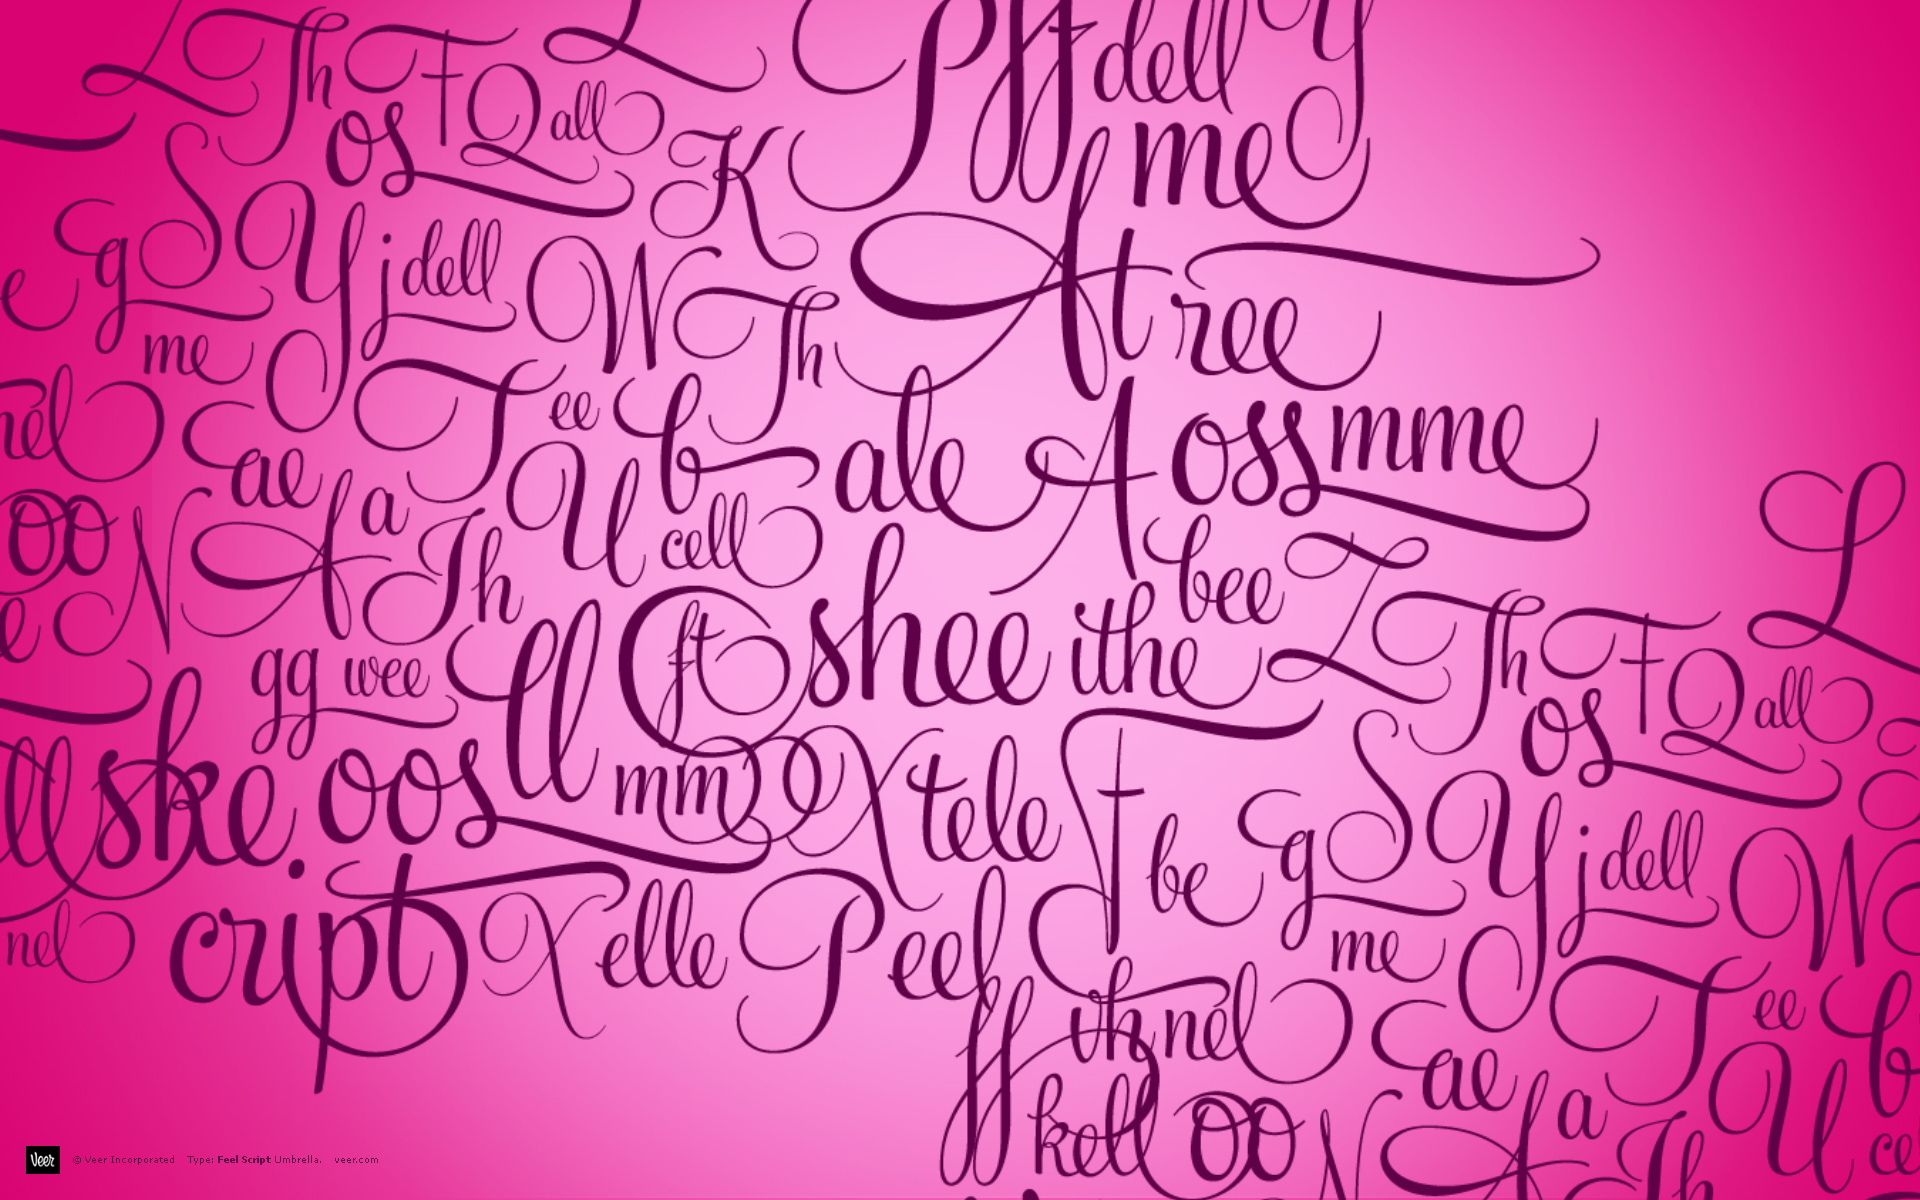 L Th F Q all L Pff dell Y
os K me
g S Y j dell W Th A t ree
e me
nel E ae T ee b ale A oss mme
U cell L
oo N A a Th bee Z Th F Q all
e gg wee ll ft shee ithe os
ll ske oos mm O X tele F be g S Y j dell W
nel cript X elle P eel me
ff th nel E ae T ee b
kell oo N A a Th U ce
Veer © Veer Incorporated Type: Feel Script Umbrella. veer.com